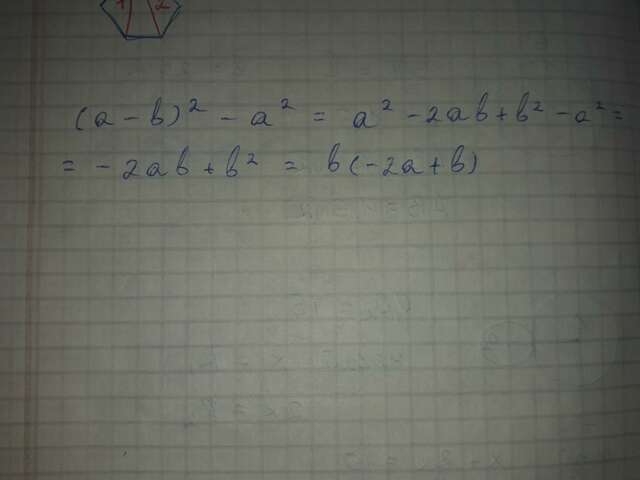 1 2
(a - b)² - a² = a² - 2ab + b² - a² =
= - 2ab + b² = b(-2a + b)